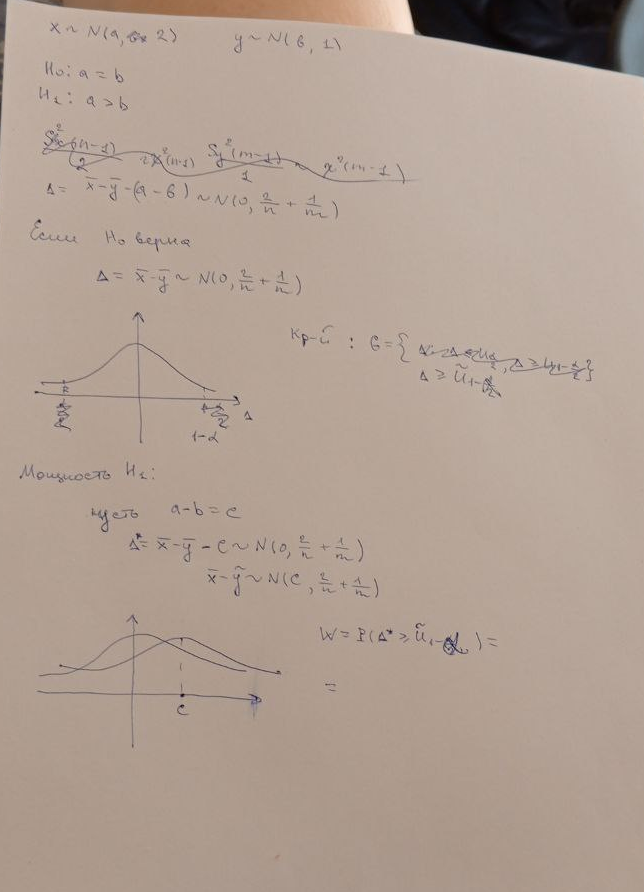 x ~ N(a, 2) y ~ N(b, 1)
H₀: a = b
H₁: a > b
Sx²(n-1) / 2 ~ χ²(n-1) Sy²(m-1) / 1 ~ χ²(m-1)
Δ = x̄ - ȳ - (a - b) ~ N(0, 2/n + 1/m)
Если H₀ верна
Δ = x̄ - ȳ ~ N(0, 2/n + 1/m)
Кр-й : G = {
Δ ≥ ũ₁₋α }
Δ
1-α
Мощность H₁:
пусть a-b = c
Δ* = x̄ - ȳ - c ~ N(0, 2/n + 1/m)
x̄ - ȳ ~ N(c, 2/n + 1/m)
W = P(Δ* ≥ ũ₁₋α) =
=
c